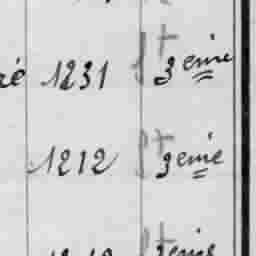 ré 1231 3eme
1212 3eme
3eme